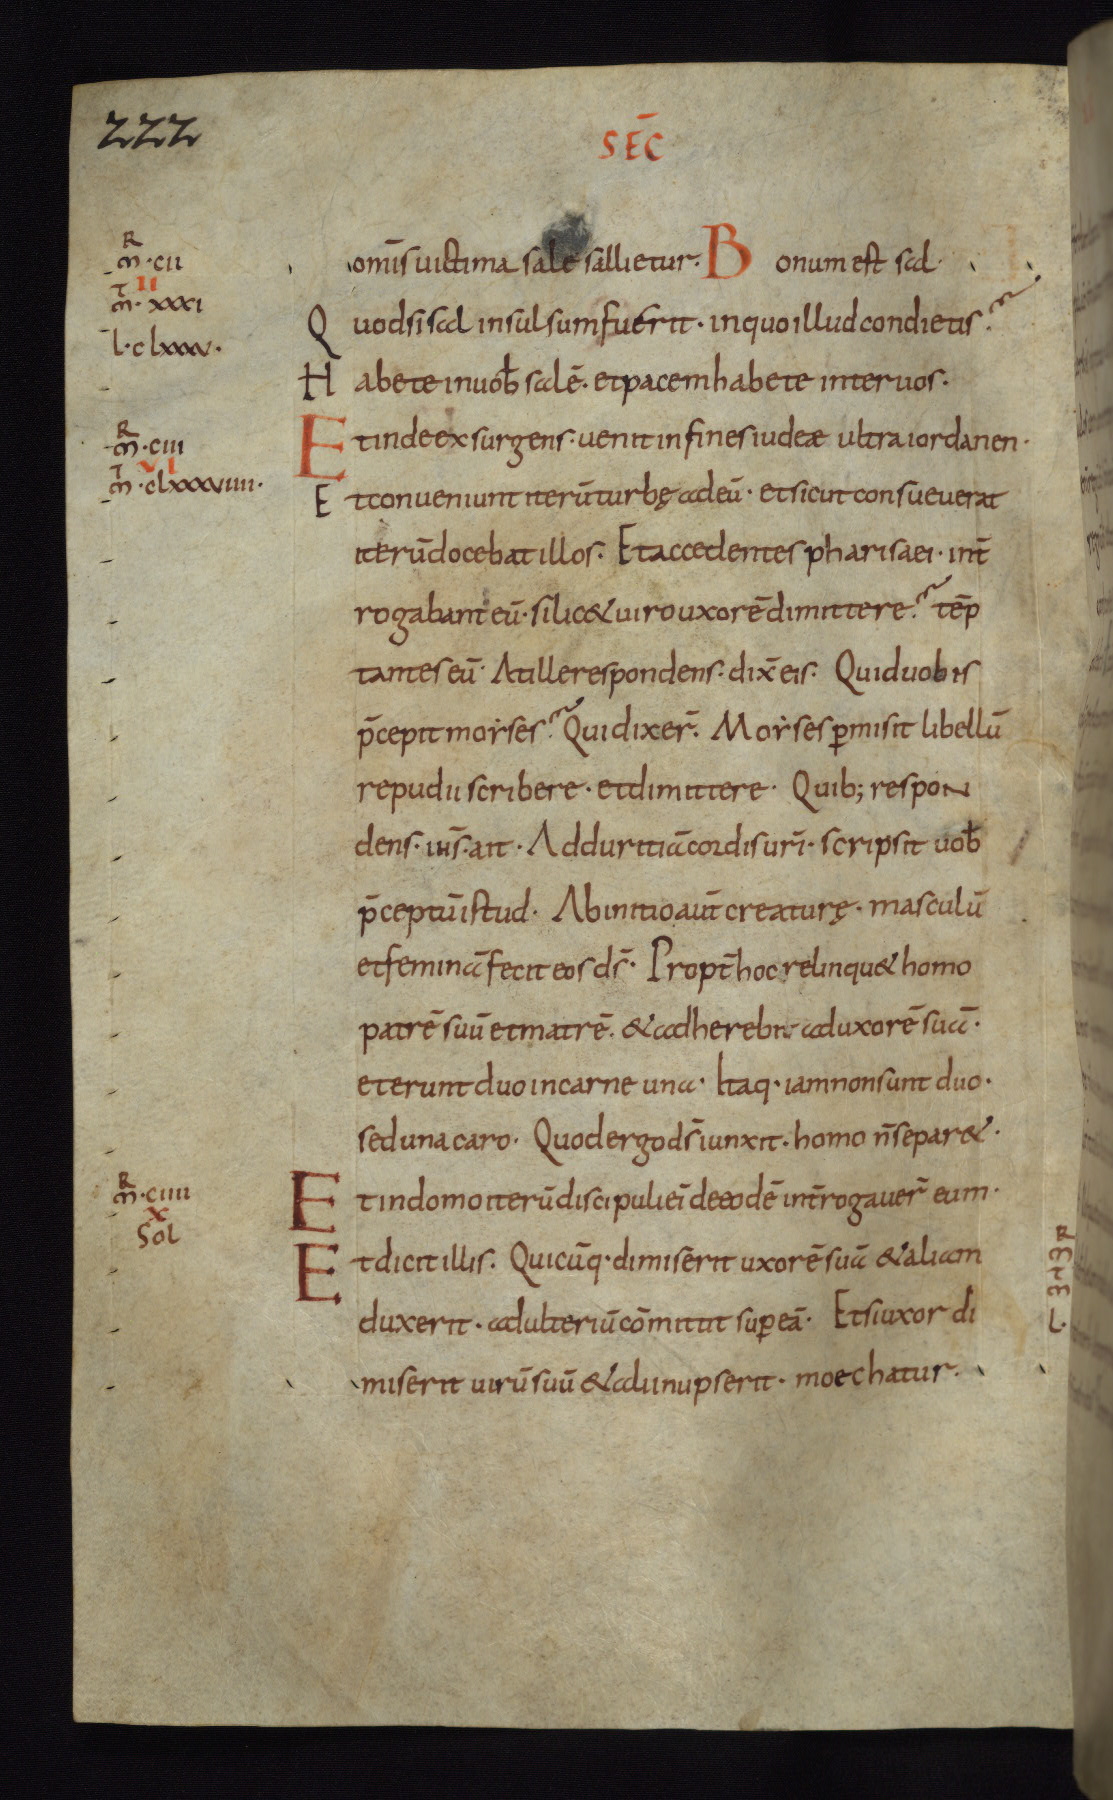 222
SEC̄
R
m̄·cii
II
T
m̄·xxxi
l·clxxxv·
omīs uictima sale sallietur. Bonum est sal·
Quodsi sal insulsum fuerit· inquo illud condietis?
Habete inuob̄ salē· et pacem habete inter uos·
R
m̄·ciii
VI
T
m̄·clxxxviiii·
Et inde exsurgens· uenit infines iudeæ ultra iordanen·
Et conueniunt iterū turbę adeū· et sicut consueuerat
iterū docebat illos. Et accedentes pharisaei· int̄
rogabant eū· si lic& uiro uxorē dimittere? tēp
tantes eū· At ille respondens· dix̄ eis. Quid uobis
p̄cepit moẏses? Qui dixer̄. Moẏses p̱misit libellū
repudii scribere· et dimittere· Quib; respon
dens· ihs̄· ait· Ad duritiā cordis ur̄i· scripsit uob̄
p̄ceptū istud· Ab initio aut̄ creaturę· masculū
et feminā fecit eos ds̄· Propt̄ hoc relinqu& homo
patrē suū et matrē· & adherebit aduxorē suā·
et erunt duo incarne una· Itaq· iam non sunt duo·
sed una caro· Quod ergo ds̄ iunxit· homo n̄ separ&·
R
m̄·ciiii
X
Sol
Et indomo iterū discipuli ei᷒ de eodē int̄rogauer̄ eum·
Et dicit illis. Quicūq· dimiserit uxorē suā & aliam
duxerit· adulteriū cōmittit sup̱ eā· Et si uxor di
miserit uirū suū & alii nupserit· moechatur·
R
m̄
T
m̄
l·